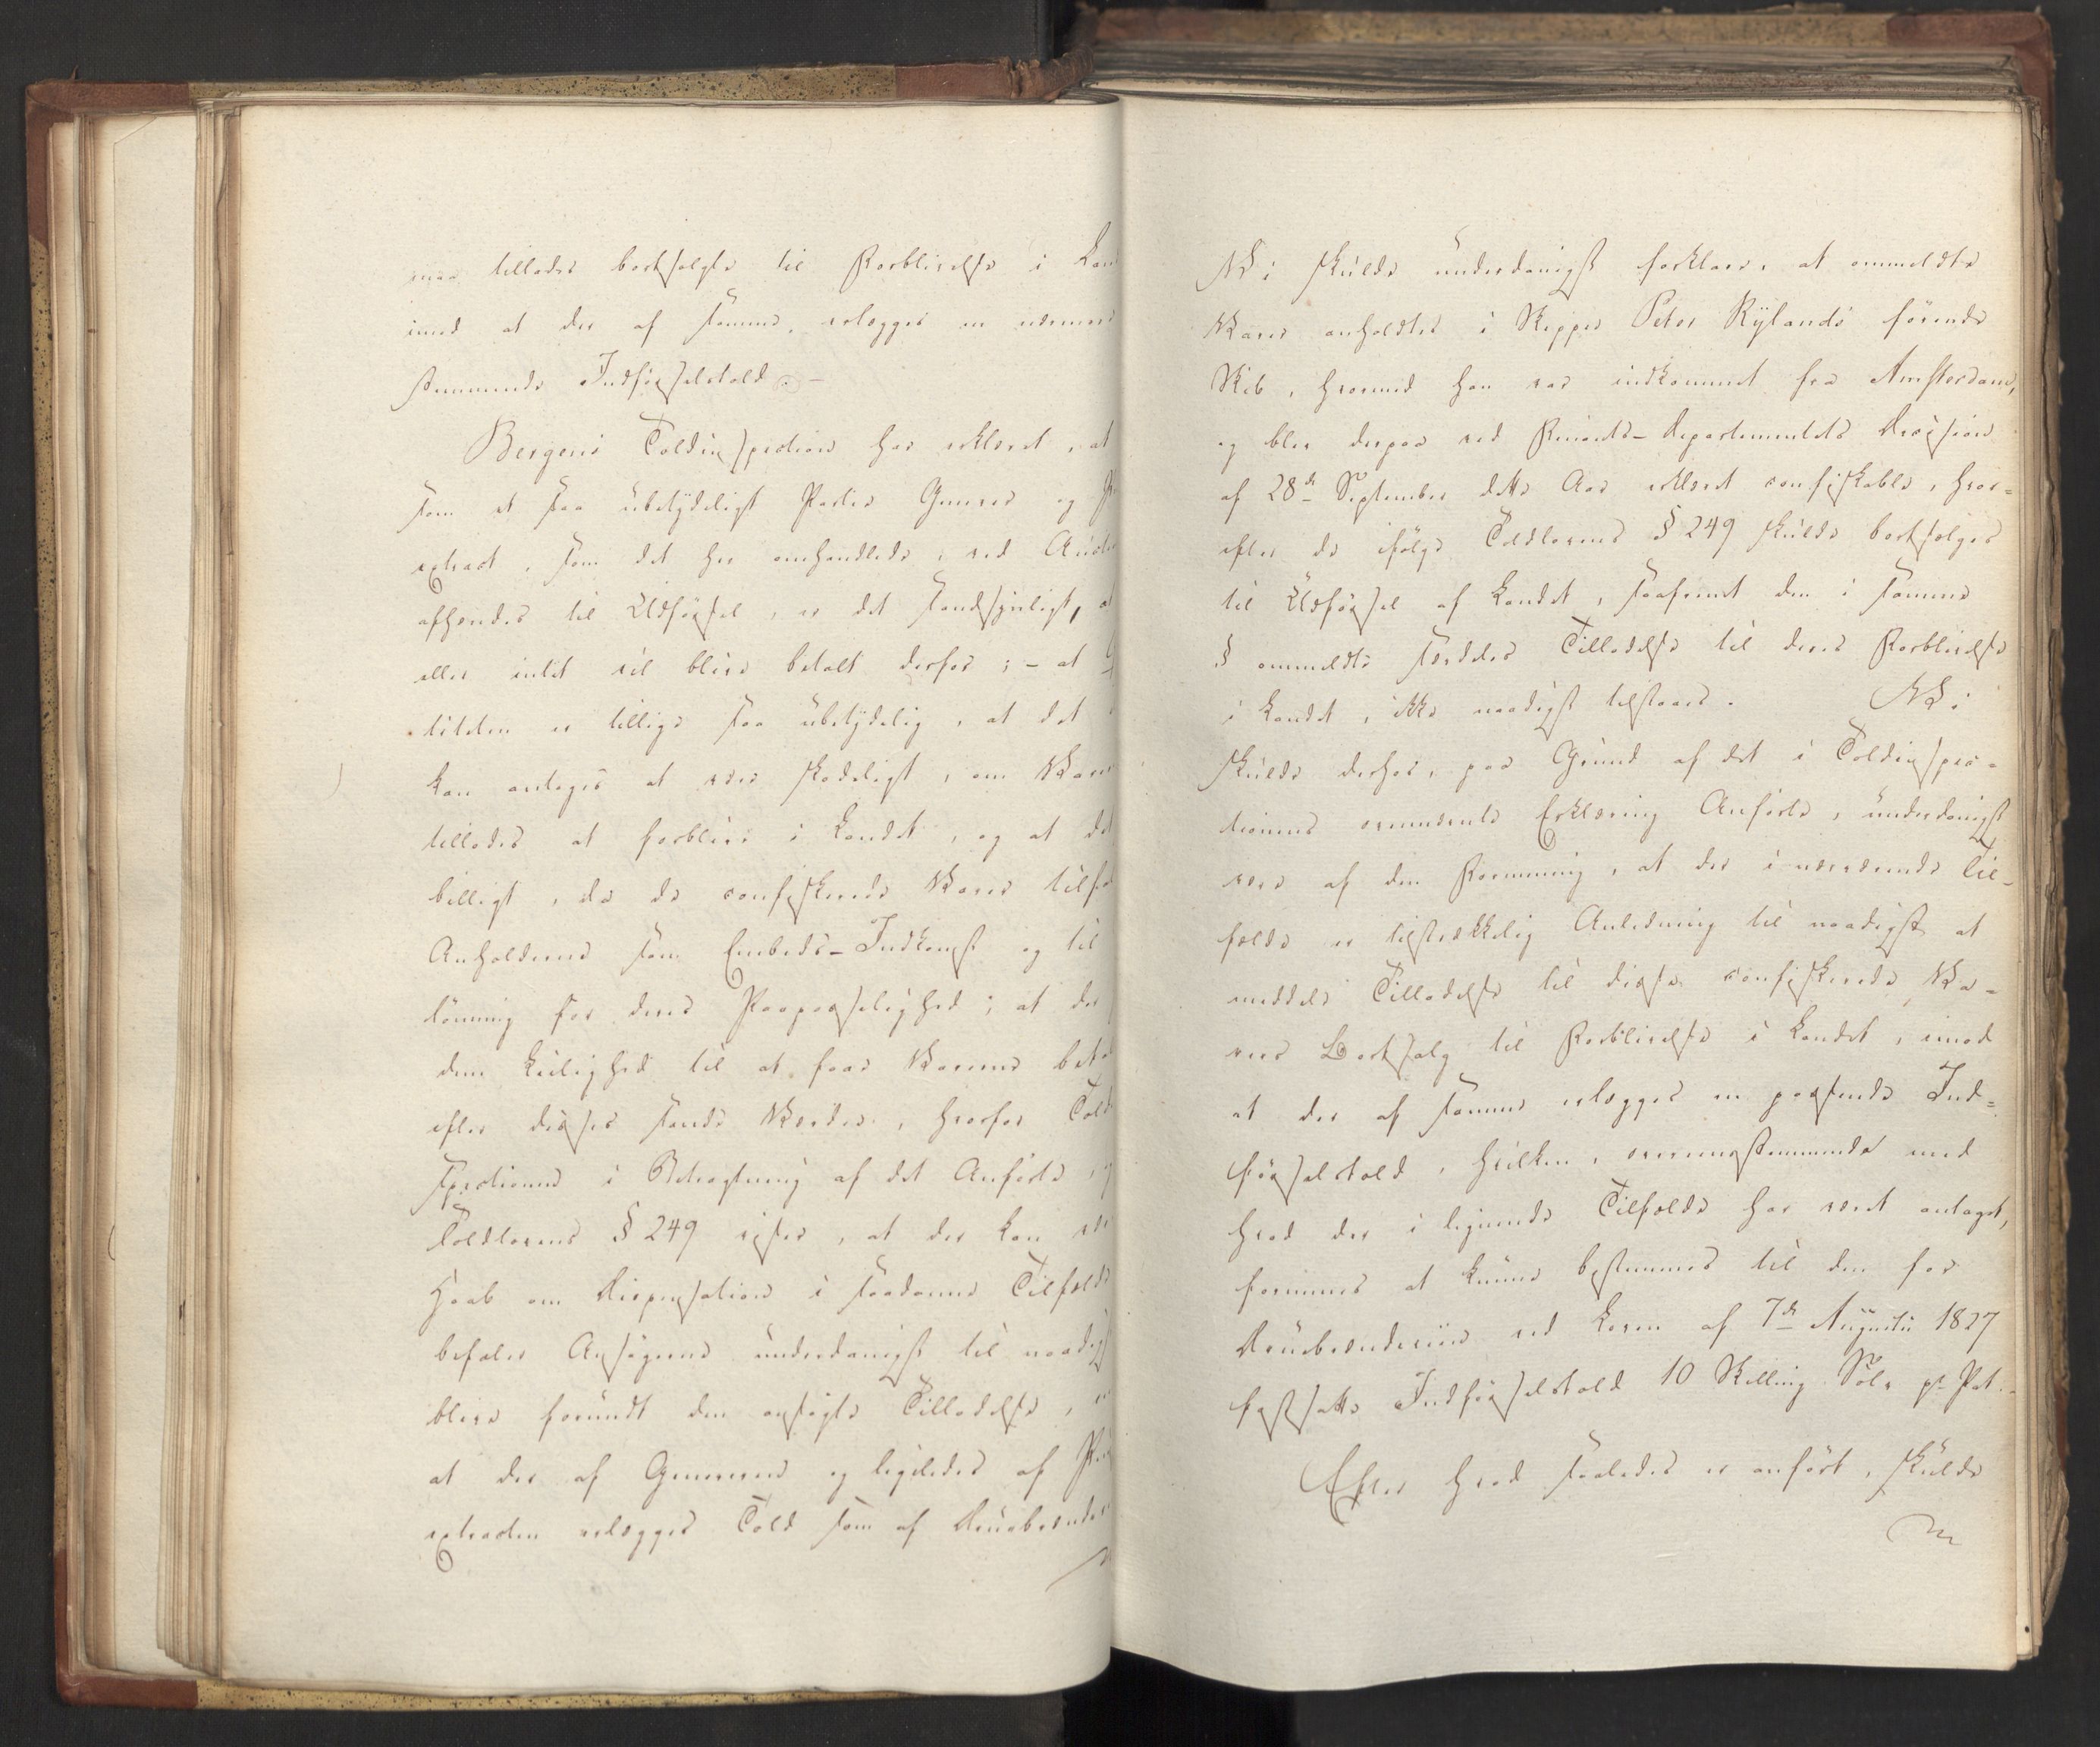 maa tillades bortsolgte til Forblivelse i Lan
imod at der af samme erlægges en nærmere
stemmende Indførselstold. —
Bergens Toldinspection har erklæret, at
som et saa ubetydeligt Partie Genever og
extract, som det her omhandlede, ved Auct
afhændes til Udførsel, er det sandsynligt, at
eller intet vil blive betalt derfor; - at
titeten er tillige saa ubetydelig, at det
kan antages at være skadeligt, om Vare
tillades at forblive i Landet, og at det
billigt, da de confiskerede Varer tilfal
Anholderne som Embeds-Indkomst og til
lønning for deres Paapasselighed; at der
dem Leilighed til at faae Varerne beta
efter disses sande Værdie, hvorfor Told
spectionen i Betragtning af det Anførte, og
Toldlovens § 249 viser, at der kan vær
Haab om Dispensation i saadanne Tilfælde
befaler Ansøgerne underdanigst til naadigst
blive forundt den ansøgte Tilladelse,
at der af Geneveren og ligeledes af
extracten erlægges Told som af Druebrænde
Vi skulde underdanigst forklare, at ommeldte
Varer anholdtes i Skipper Peter Rylands førende
Skib, hvormed han var indkommet fra Amsterdam,
og blev derpaa ved Finants-Departementets Decision
af 28de September dette Aar erklæret confiskable, hvor-
efter de ifølge Toldlovens § 249 skulde bortsælges
til Udførsel af Landet, saafremt den i samme
§ ommeldte særdeles Tilladelse til deres Forblivelse
i Landet, ikke naadigst tilstaaes. Vi
skulde derhos, paa Grund af det i Toldinspec-
tionens ovennævnte Erklæring Anførte, underdanigst
være af den Formening, at der i nærværende Til-
fælde er tilstrækkelig Anledning til naadigst at
meddele Tilladelse til disse confiskerede Va-
rers Bortsalg til Forblivelse i Landet, imod
at der af samme erlægges en passende Ind-
førselstold, hvilken, overeensstemmende med
hvad der i lignende Tilfælde har været antaget,
formenes at kunne bestemmes til den for
Druebrændeviin ved Loven af 7de Augusti 1827
fastsatte Indførselstold 10 Skilling Sølv pr Pot.
Efter hvad saaledes er anført, skulde